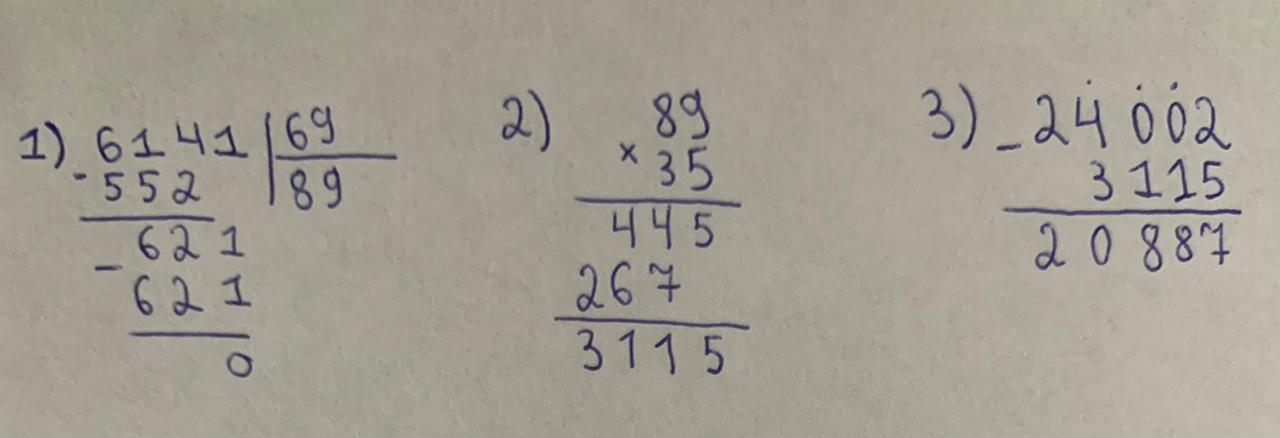 1) 6141 | 69
- 552 | 89
- 621
621
0
2) 89
× 35
445
267
3115
3) - 24002
3115
20887